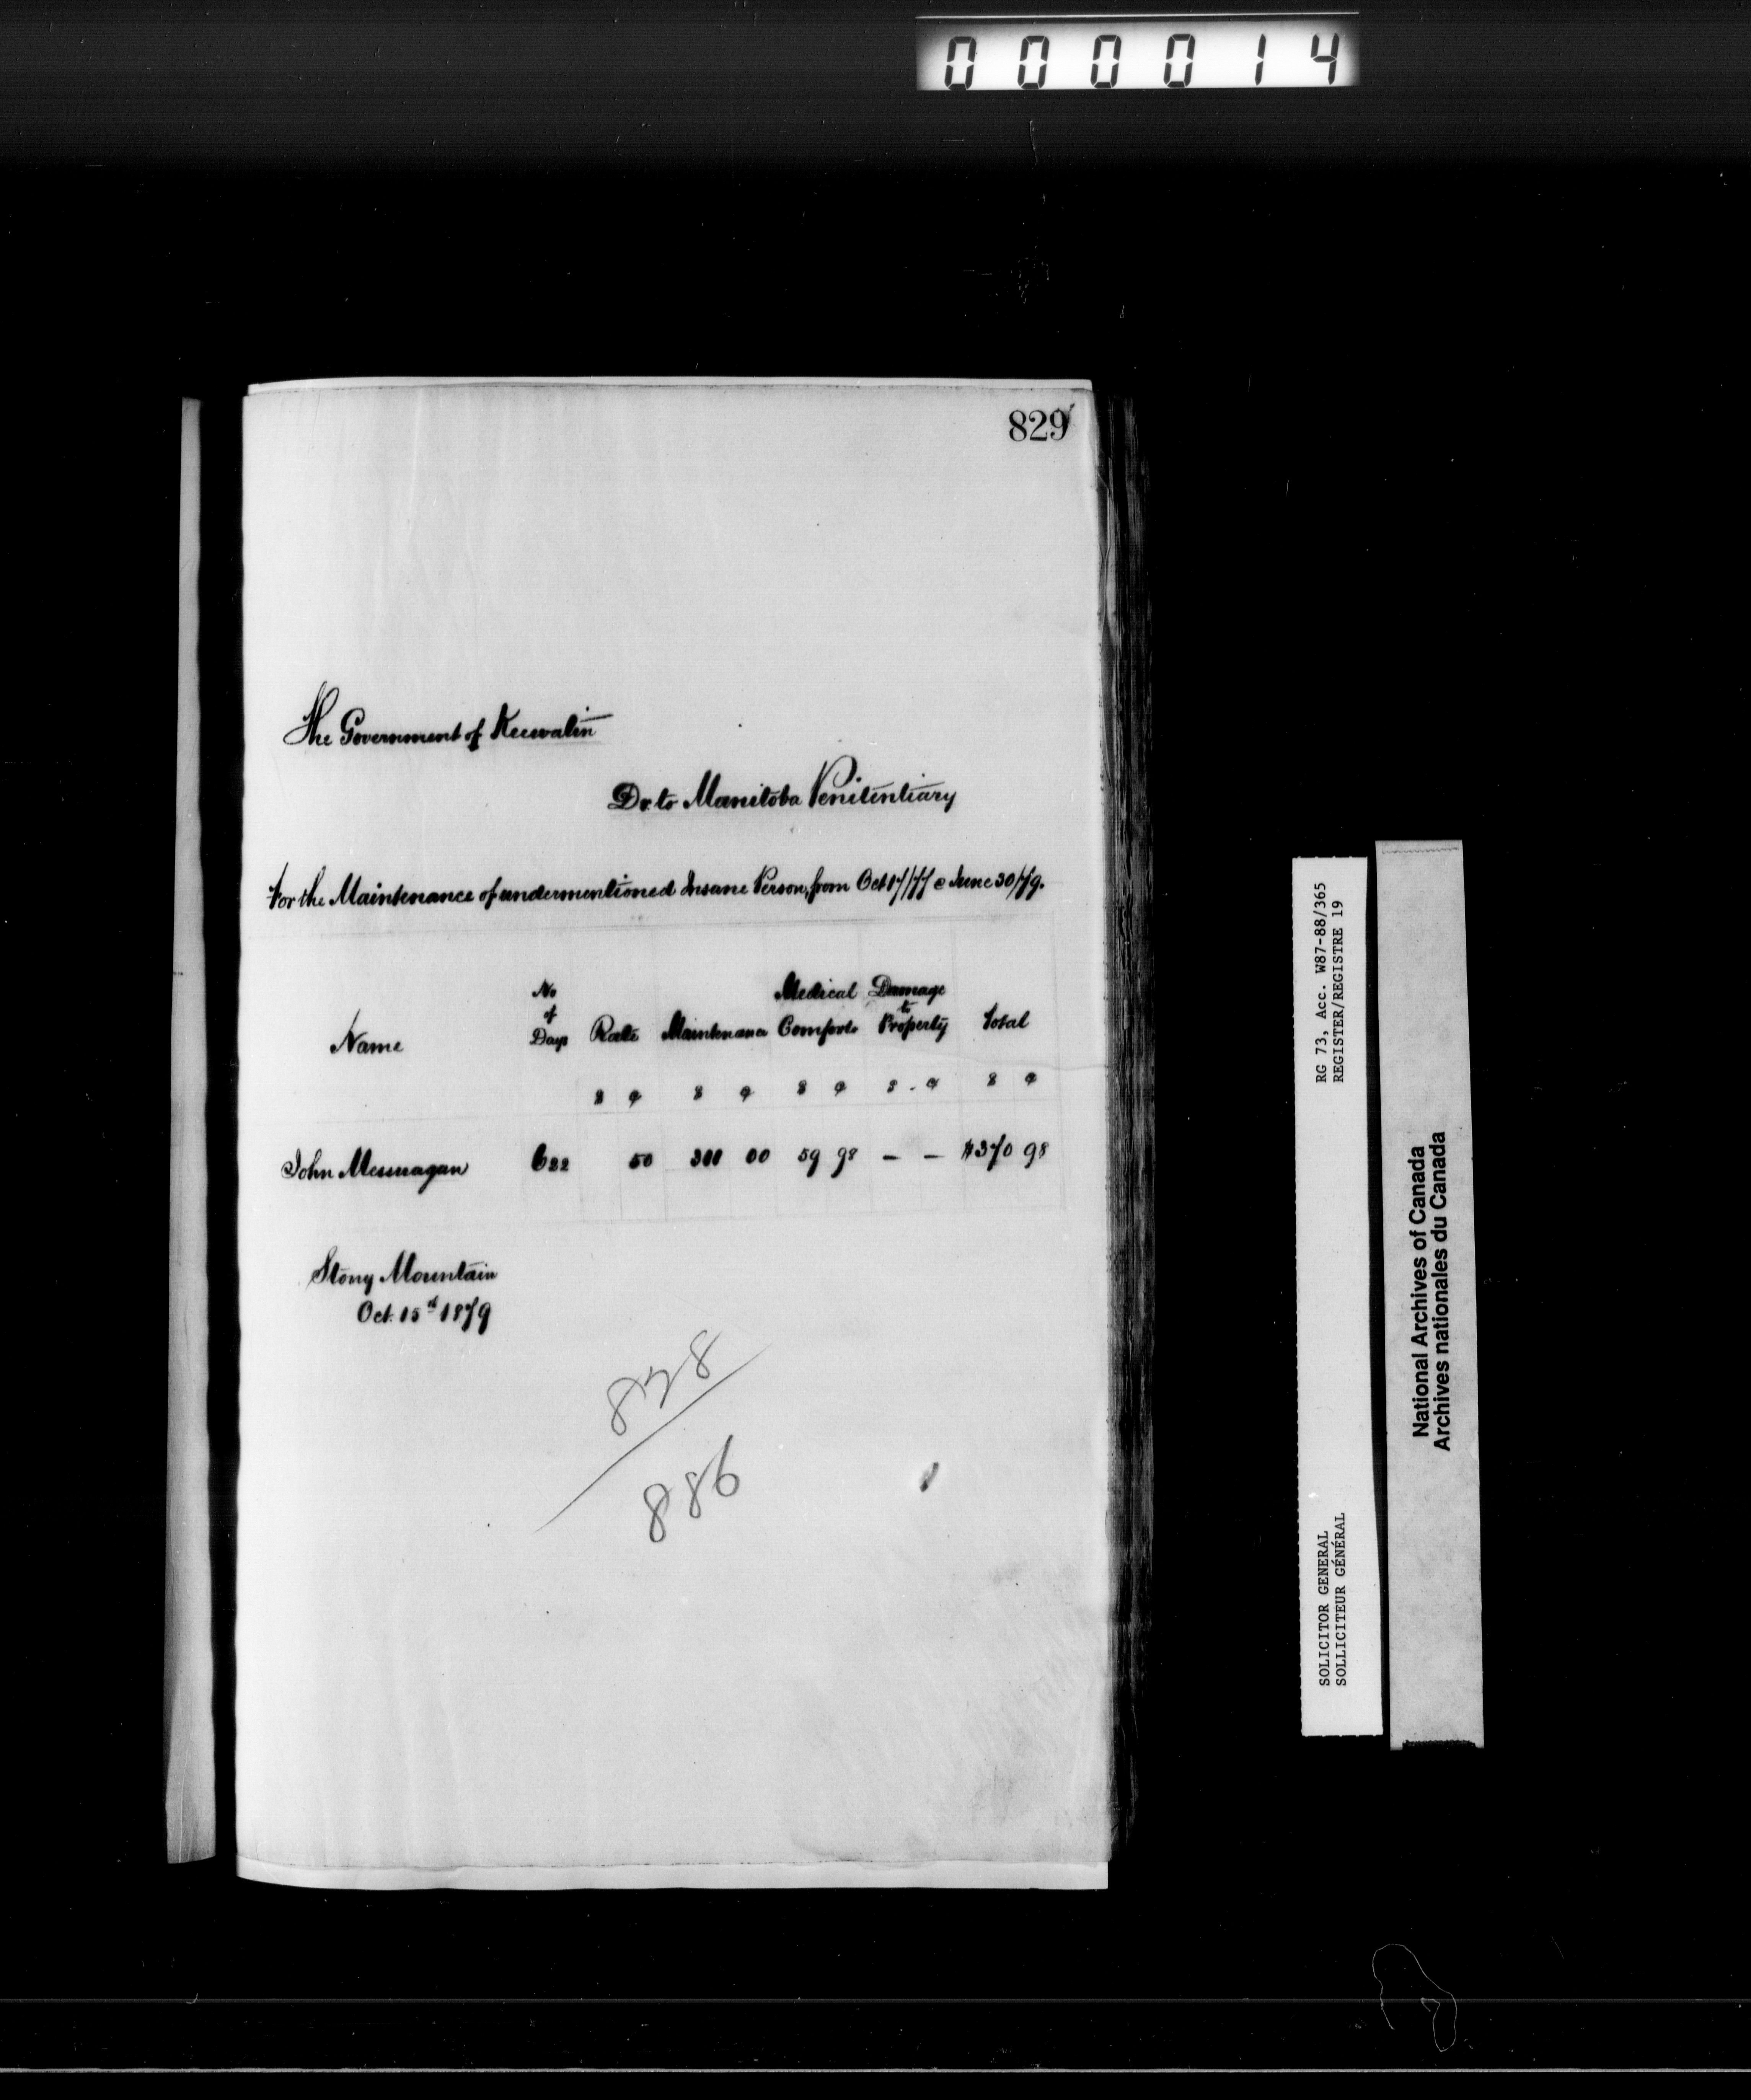 000014
829
The Government of Keewatin
Dr. to Manitoba Penitentiary
For the Maintenance of undermentioned Insane Person, from Oct 17/77 @ June 30/79.
Name No of Days Rate Maintenance Medical Comforts Damage to Property Total
$ ¢ $ ¢ $ ¢ $ ¢ $ ¢
John 622 50 311 00 59 98 — — $370 98
Stony Mountain
Oct. 15th 1879
828
886
RG 73, Acc. W87-88/365
REGISTER/REGISTRE 19
SOLICITOR GENERAL
SOLLICITEUR GÉNÉRAL
National Archives of Canada
Archives nationales du Canada